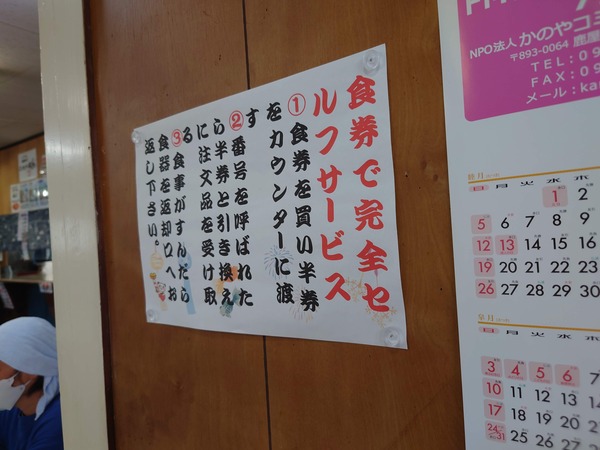 食券で完全セ
ルフサービス
①食券を買い半券
をカウンターに渡
す
②番号を呼ばれた
ら半券と引き換え
に注文品を受け取
る
③食事がすんだら
食器を返却口へお
返し下さい。
NPO法人 かのやコミ
〒893-0064 鹿屋
TEL:09
FAX:09
メール:ka
睦月
日 月 火 水 木
1 2
5 6 7 8 9
12 13 14 15 16
19 20 21 22 23
26 27 28 29 30
皐月
日 月 火 水 木
3 4 5 6 7
10 11 12 13
17 18 19 20
24 31 25 26 27 28